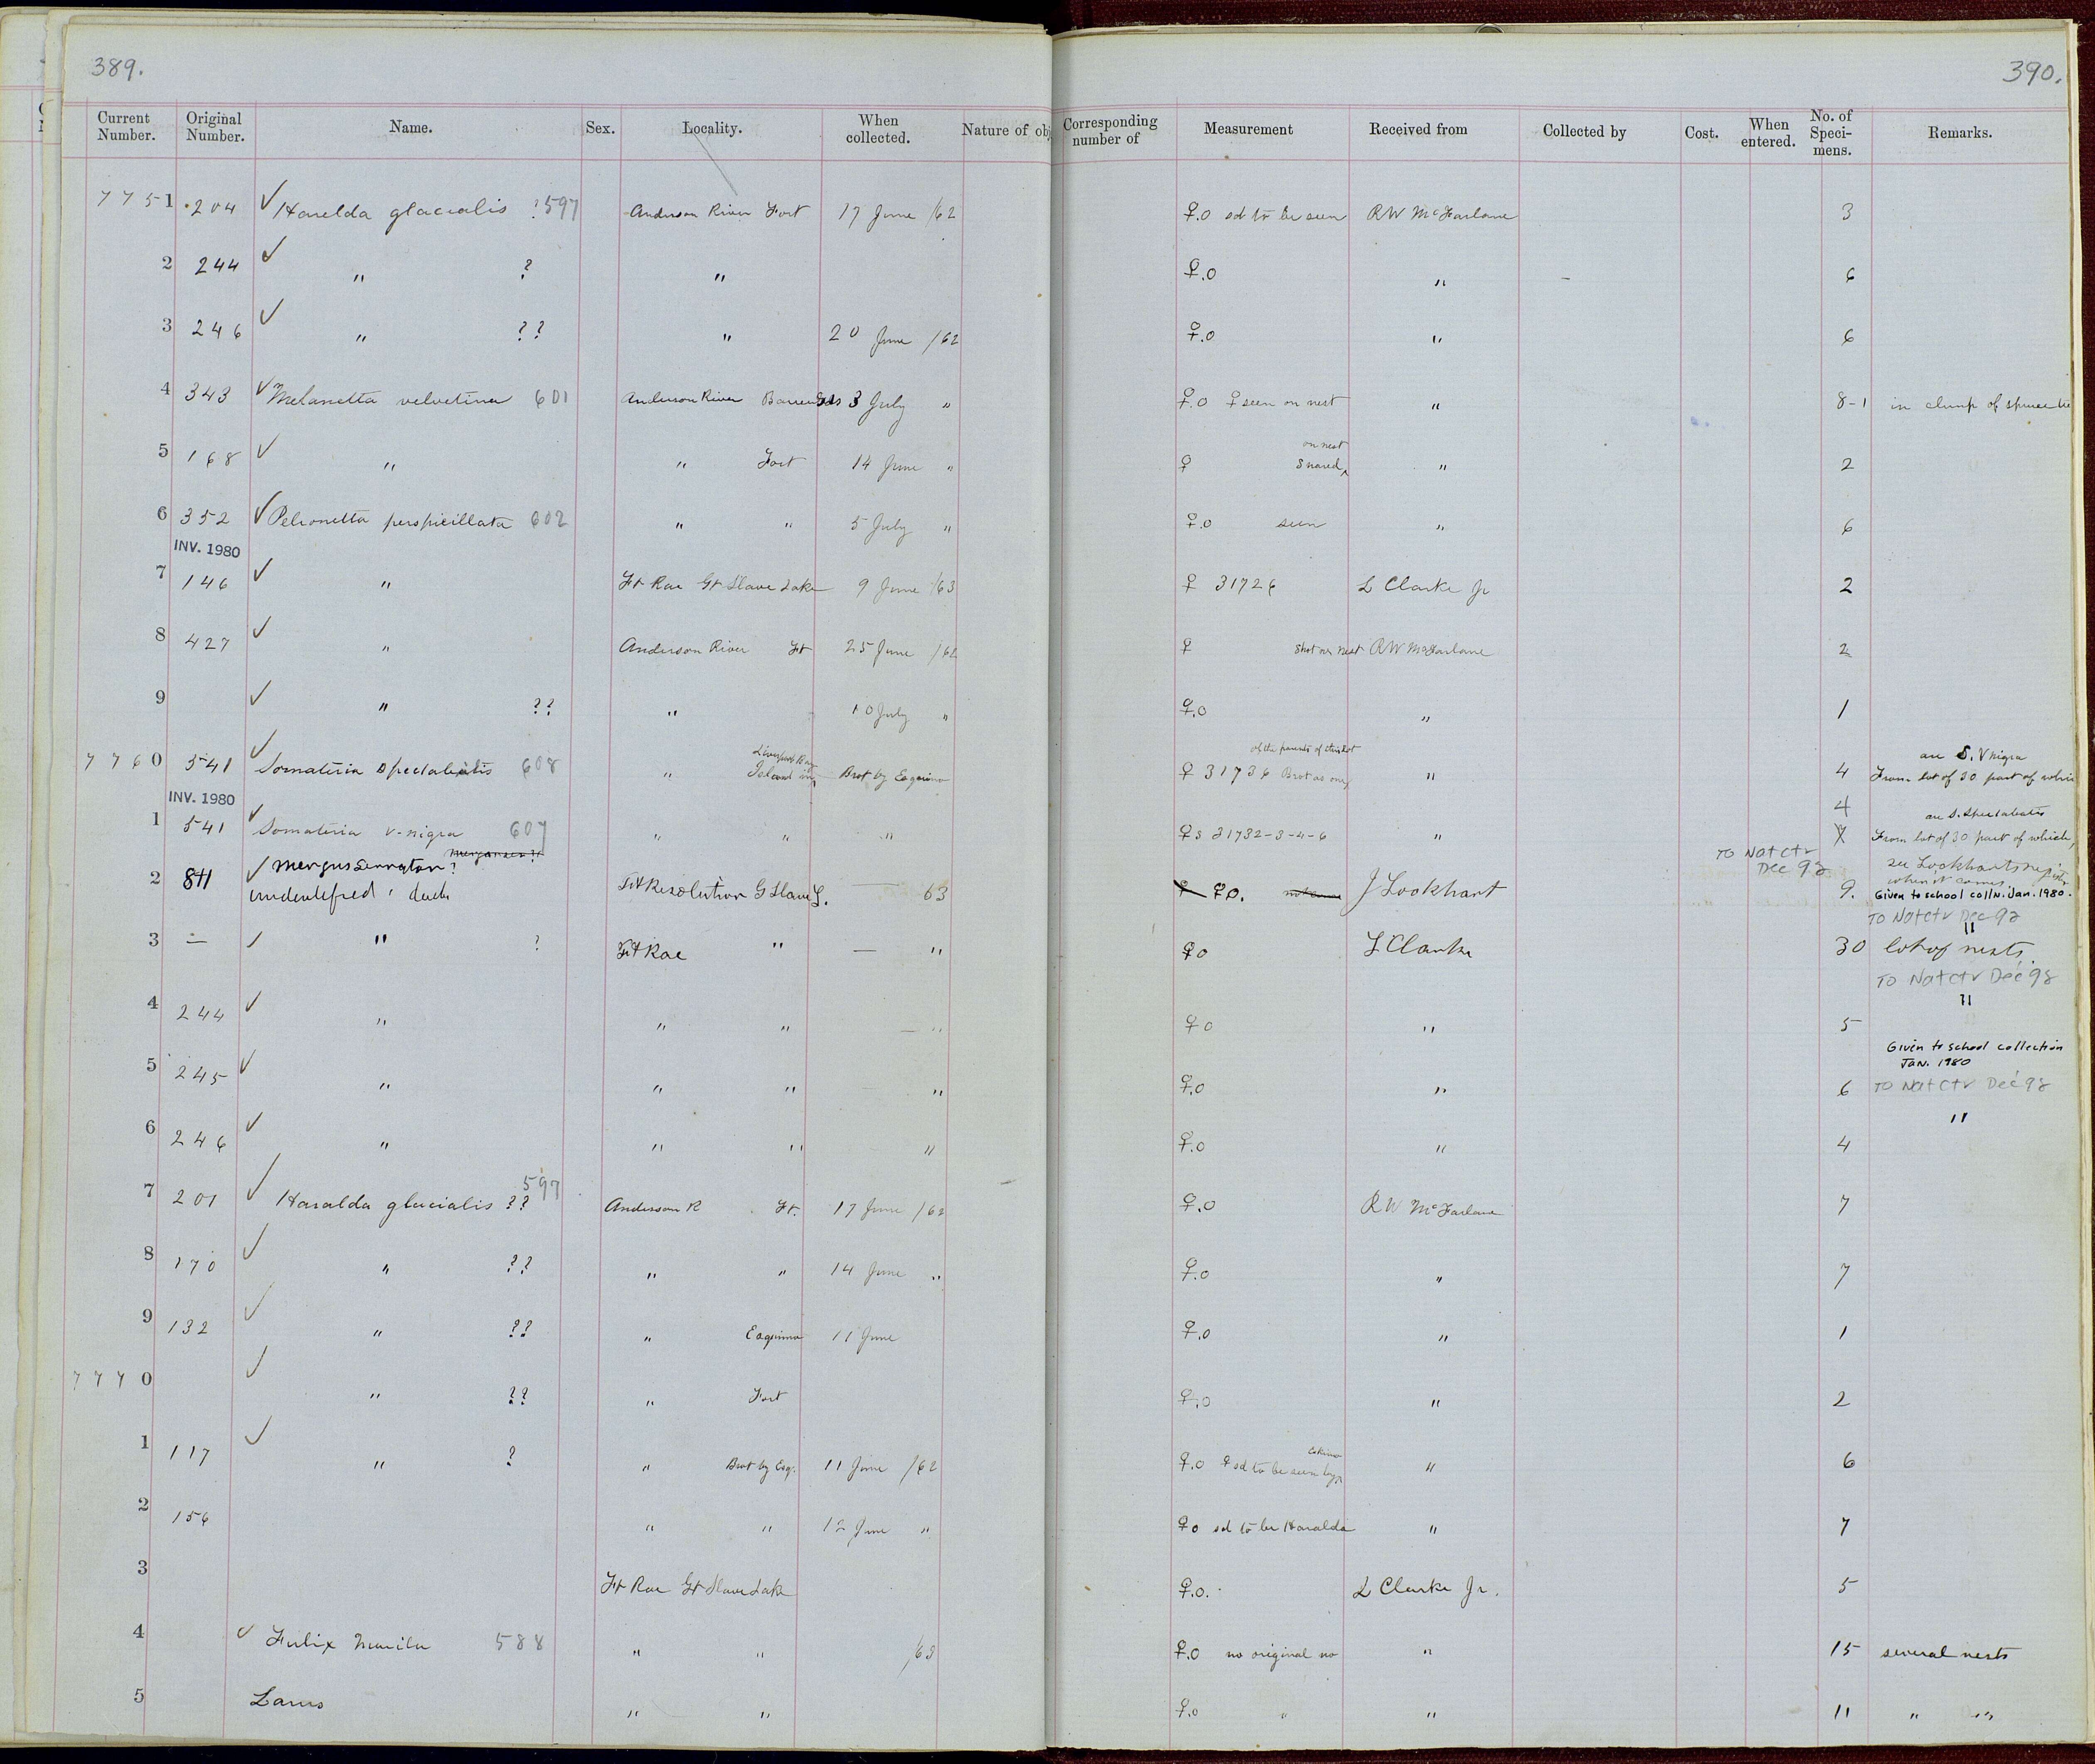 389.
390.
Current Number. Original Number. Name. Sex. Locality. When collected. Nature of obj Corresponding number of Measurement Received from Collected by Cost. When entered. No. of Speci- mens. Remarks.
7751 204 ✓ Harelda glacialis ? 597 Anderson River Fort 17 June /62 ♀.0 sd to be seen RW McFarlane 3
2 244 ✓ " ? " ♀.0 " 6
3 246 ✓ " ?? " 20 June /62 ♀.0 " 6
4 343 ✓ Melanetta velvetina 601 Anderson River 3 July " ♀.0 ♀ seen on nest " 8-1 in clump of spruce
on nest
5 168 ✓ " " Fort 14 June " ♀ Snared " 2
6 352 ✓ Pelionetta perspicillata 602 " " 5 July " ♀.0 seen " 6
INV. 1980
7 146 ✓ " Ft Rae Gt Slave Lake 9 June /63 ♀ 31726 L Clarke Jr 2
8 427 ✓ " Anderson River Ft 25 June /62 ♀ Shot on nest RW McFarlane 2
9 ✓ " ?? " 10 July " ♀.0 " 1
Liverpool Bay of the parents of this lot are S. V nigra
7760 541 ✓ Somateria spectabilis 608 " Island in Brot by Esquimo ♀ 31736 Brot as one " 4 From lot of 30 part of
INV. 1980 4 are S. Spectabilis
1 541 ✓ Somateria v-nigra 607 " " " ♀s 31732-3-4-6 " 7 From lot of 30 part of which
merganser ?
TO Nat ctr Dec 98
2 811 ✓ Mergus serrator? Ft Resolution G Slave L. — 63 ♀ ♀0. J Lockhart 9. see Lockharts
when it comes
duck Given to school colln. Jan. 1980.
TO Nat ctr Dec 98
"
3 — ✓ " ? Ft Rae " — " ♀0 L Clarke 30 lot of nests.
TO Nat ctr Dec 98
"
4 244 ✓ " " " — " ♀0 " 5
Given to school collection
JAN. 1980
5 245 ✓ " " " " ♀.0 " 6 TO Nat ctr Dec 98
"
6 246 ✓ " " " " ♀.0 " 4
597
7 201 ✓ Haralda glacialis ?? Anderson R Ft. 17 June /62 ♀.0 RW McFarlane 7
8 170 ✓ " ?? " " 14 June " ♀.0 " 7
9 132 ✓ " ?? " Esquimo 11 June ♀.0 " 1
7770 ✓ " ?? " Fort ♀.0 " 2
Eskimo
1 117 ✓ " ? " Brot by Esq. 11 June /62 ♀.0 ♀ sd to be seen by " 6
2 156 " " 12 June " ♀0 sd to be Haralda " 7
3 Ft Rae Gt Slave Lake ♀.0. L Clarke Jr. 5
4 ✓ Fulix Marila 588 " " /63 ♀.0 no original no " 15 several nests
5 Larus " " ♀.0 " " 11 " "